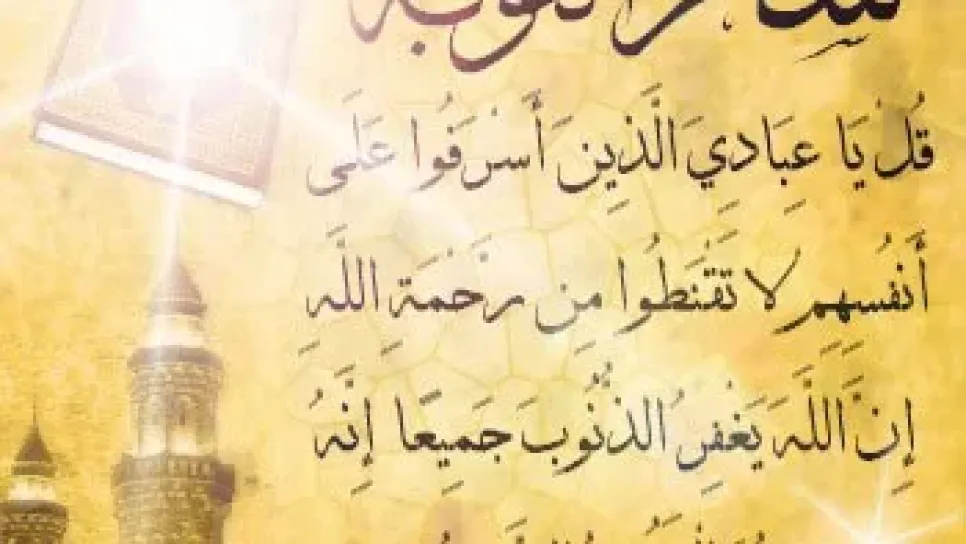 التوبة
قُلْ يَا عِبَادِيَ الَّذِينَ أَسْرَفُوا عَلَى
أَنفُسِهِمْ لَا تَقْنَطُوا مِن رَحْمَةِ اللَّهِ
إِنَّ اللَّهَ يَغْفِرُ الذُّنُوبَ جَمِيعًا إِنَّهُ